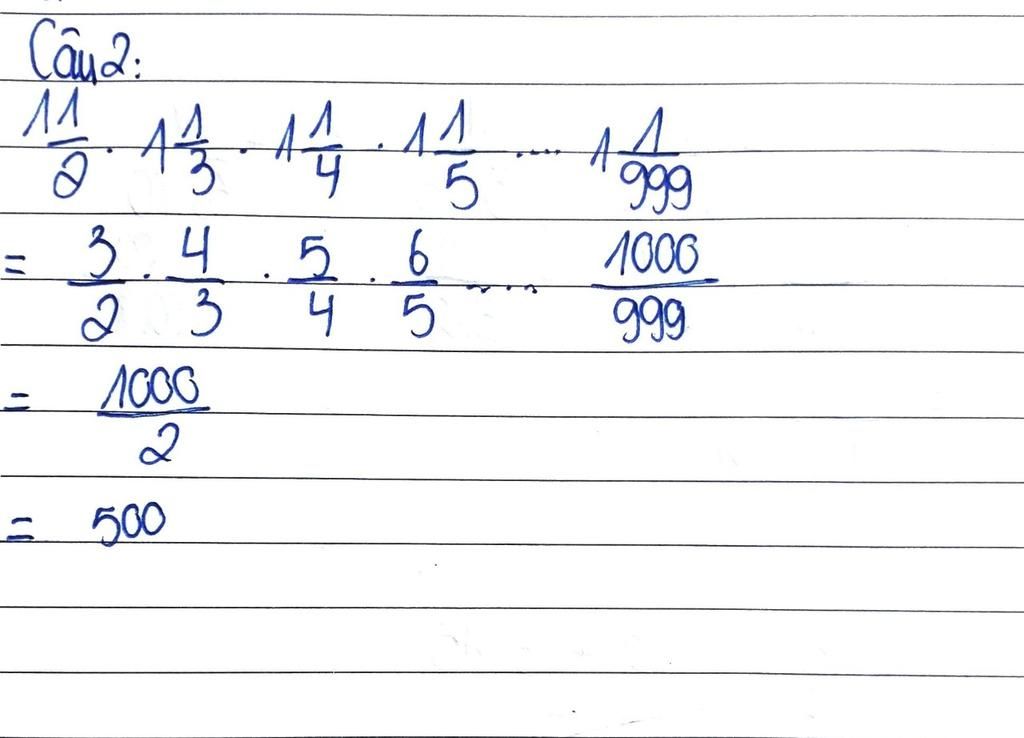 Câu 2:
1 1/2 . 1 1/3 . 1 1/4 . 1 1/5 .... 1 1/999
= 3/2 . 4/3 . 5/4 . 6/5 .... 1000/999
= 1000/2
= 500